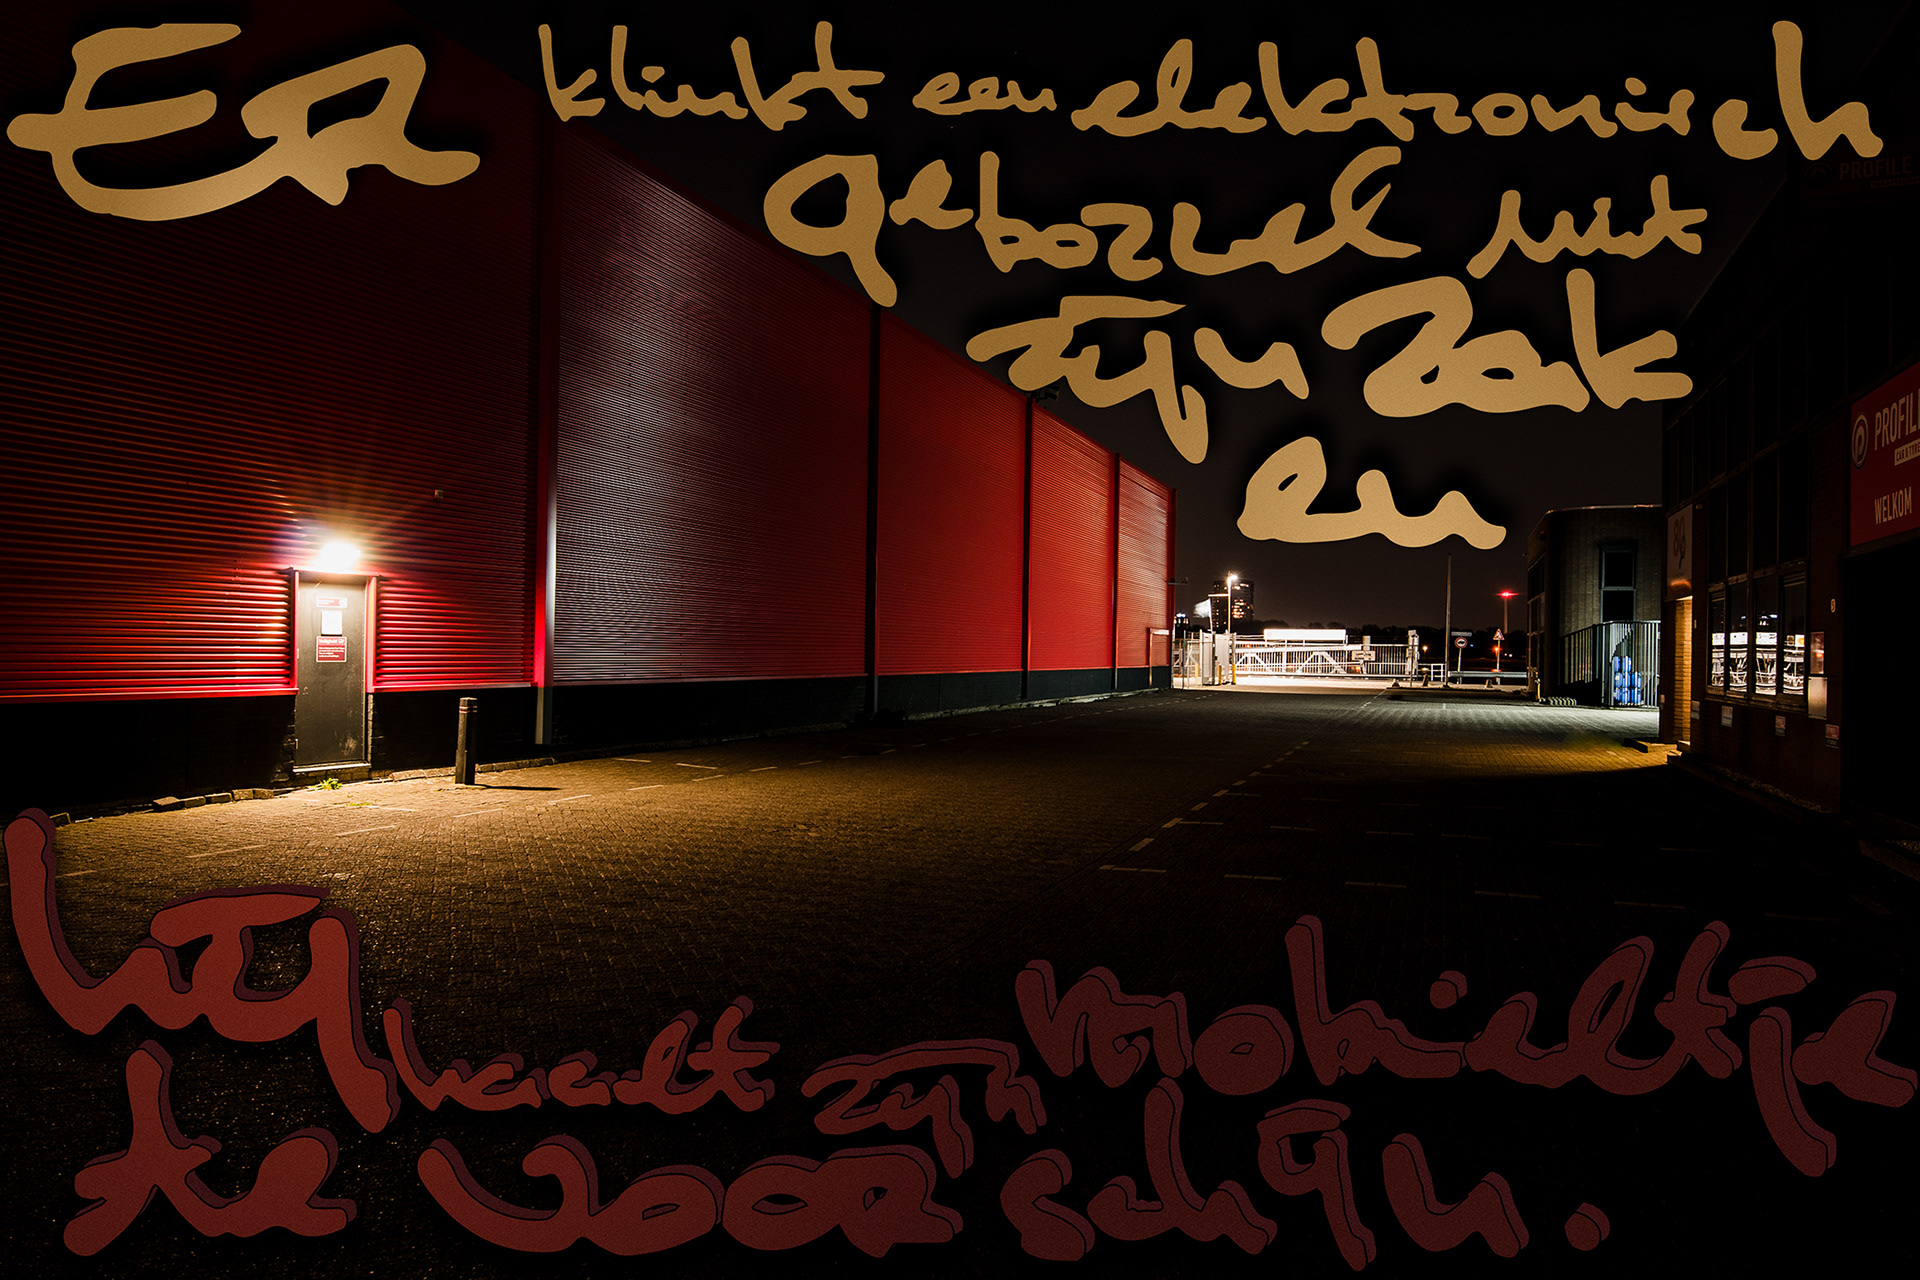 Er klinkt een elektronisch
geborrel uit
zijn zak
en
hij haalt zijn mobieltje
te voorschijn.
PROFILE
PROFILE
CAR & TYRE
WELKOM